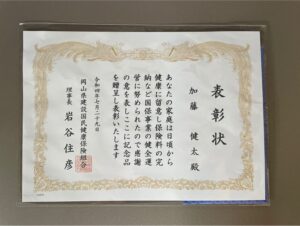 表彰状
加藤　健太殿
あなたの家庭は日頃から
健康に留意し保険料の完
納など国保事業の健全運
営に努められたので感謝
の意を表しここに記念品
を贈呈し表彰いたします
令和四年七月二十九日
岡山県建設国民健康保険組合
理事長　岩谷　住彦